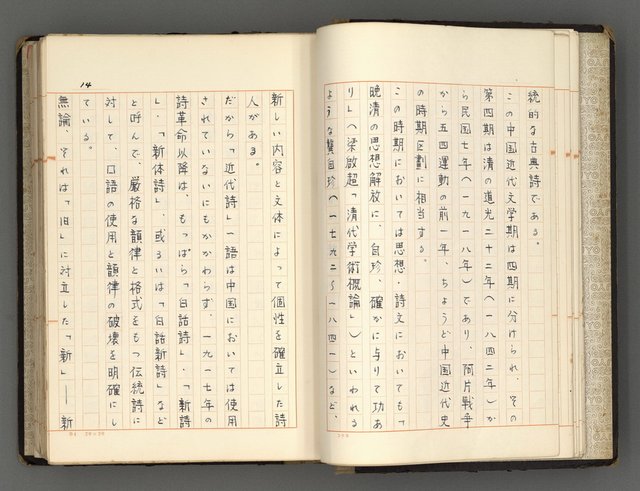 統的な古典詩である。
この中国近代文学期は四期に分けられ、その
第四期は清の道光二十二年(一八四二年)か
ら民国七年(一九一八年)であり、阿片戦争
から五四運動の前一年、ちょうど中国近代史
の時期区劃に相当する。
この時期においては思想・詩文においても「
晩清の思想解放に、自珍、確かに与りて功あ
り」(梁啟超「清代学術概論」)といわれる
ような龔自珍(一七九二〜一八四一)など、
14
新しい内容と文体によって個性を確立した詩
人がある。
だから「近代詩」一語は中国においては使用
されていないにもかかわらず、一九一七年の
詩革命以降は、もっぱら「白話詩」・「新詩
」・「新体詩」、或るいは「白話新詩」など
と呼んで、厳格な韻律と格式をもつ伝統詩に
対して、口語の使用と韻律の破壊を明確にし
ている。
無論、それは「旧」に対立した「新」——新